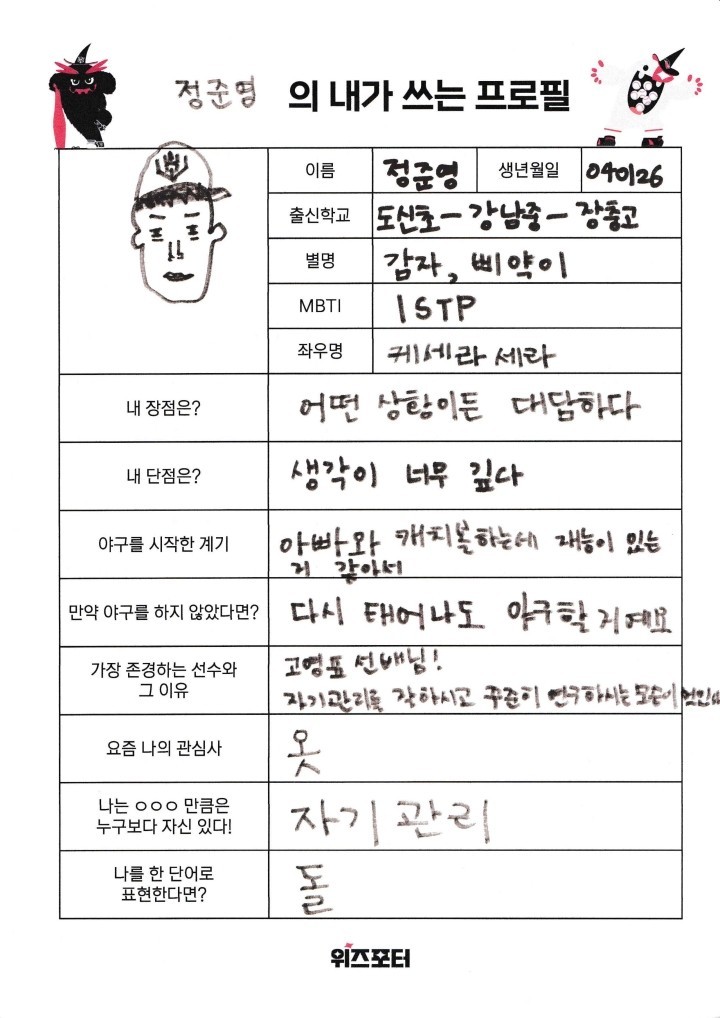 정준영 의 내가 쓰는 프로필
이름 정준영 생년월일 040126
출신학교 도신초-강남중-장충고
별명 감자, 삐약이
MBTI ISTP
좌우명 케세라 세라
내 장점은? 어떤 상황이든 대담하다
내 단점은? 생각이 너무 깊다
야구를 시작한 계기 아빠와 캐치볼하는데 재능이 있는
거 같아서
만약 야구를 하지 않았다면? 다시 태어나도 야구할 거예요
가장 존경하는 선수와
그 이유
고영표 선배님!
자기관리를 잘하시고 꾸준히 연구하시는 모습이
요즘 나의 관심사 옷
나는 ㅇㅇㅇ 만큼은
누구보다 자신 있다!
자기관리
나를 한 단어로
표현한다면?
돌
위즈포터